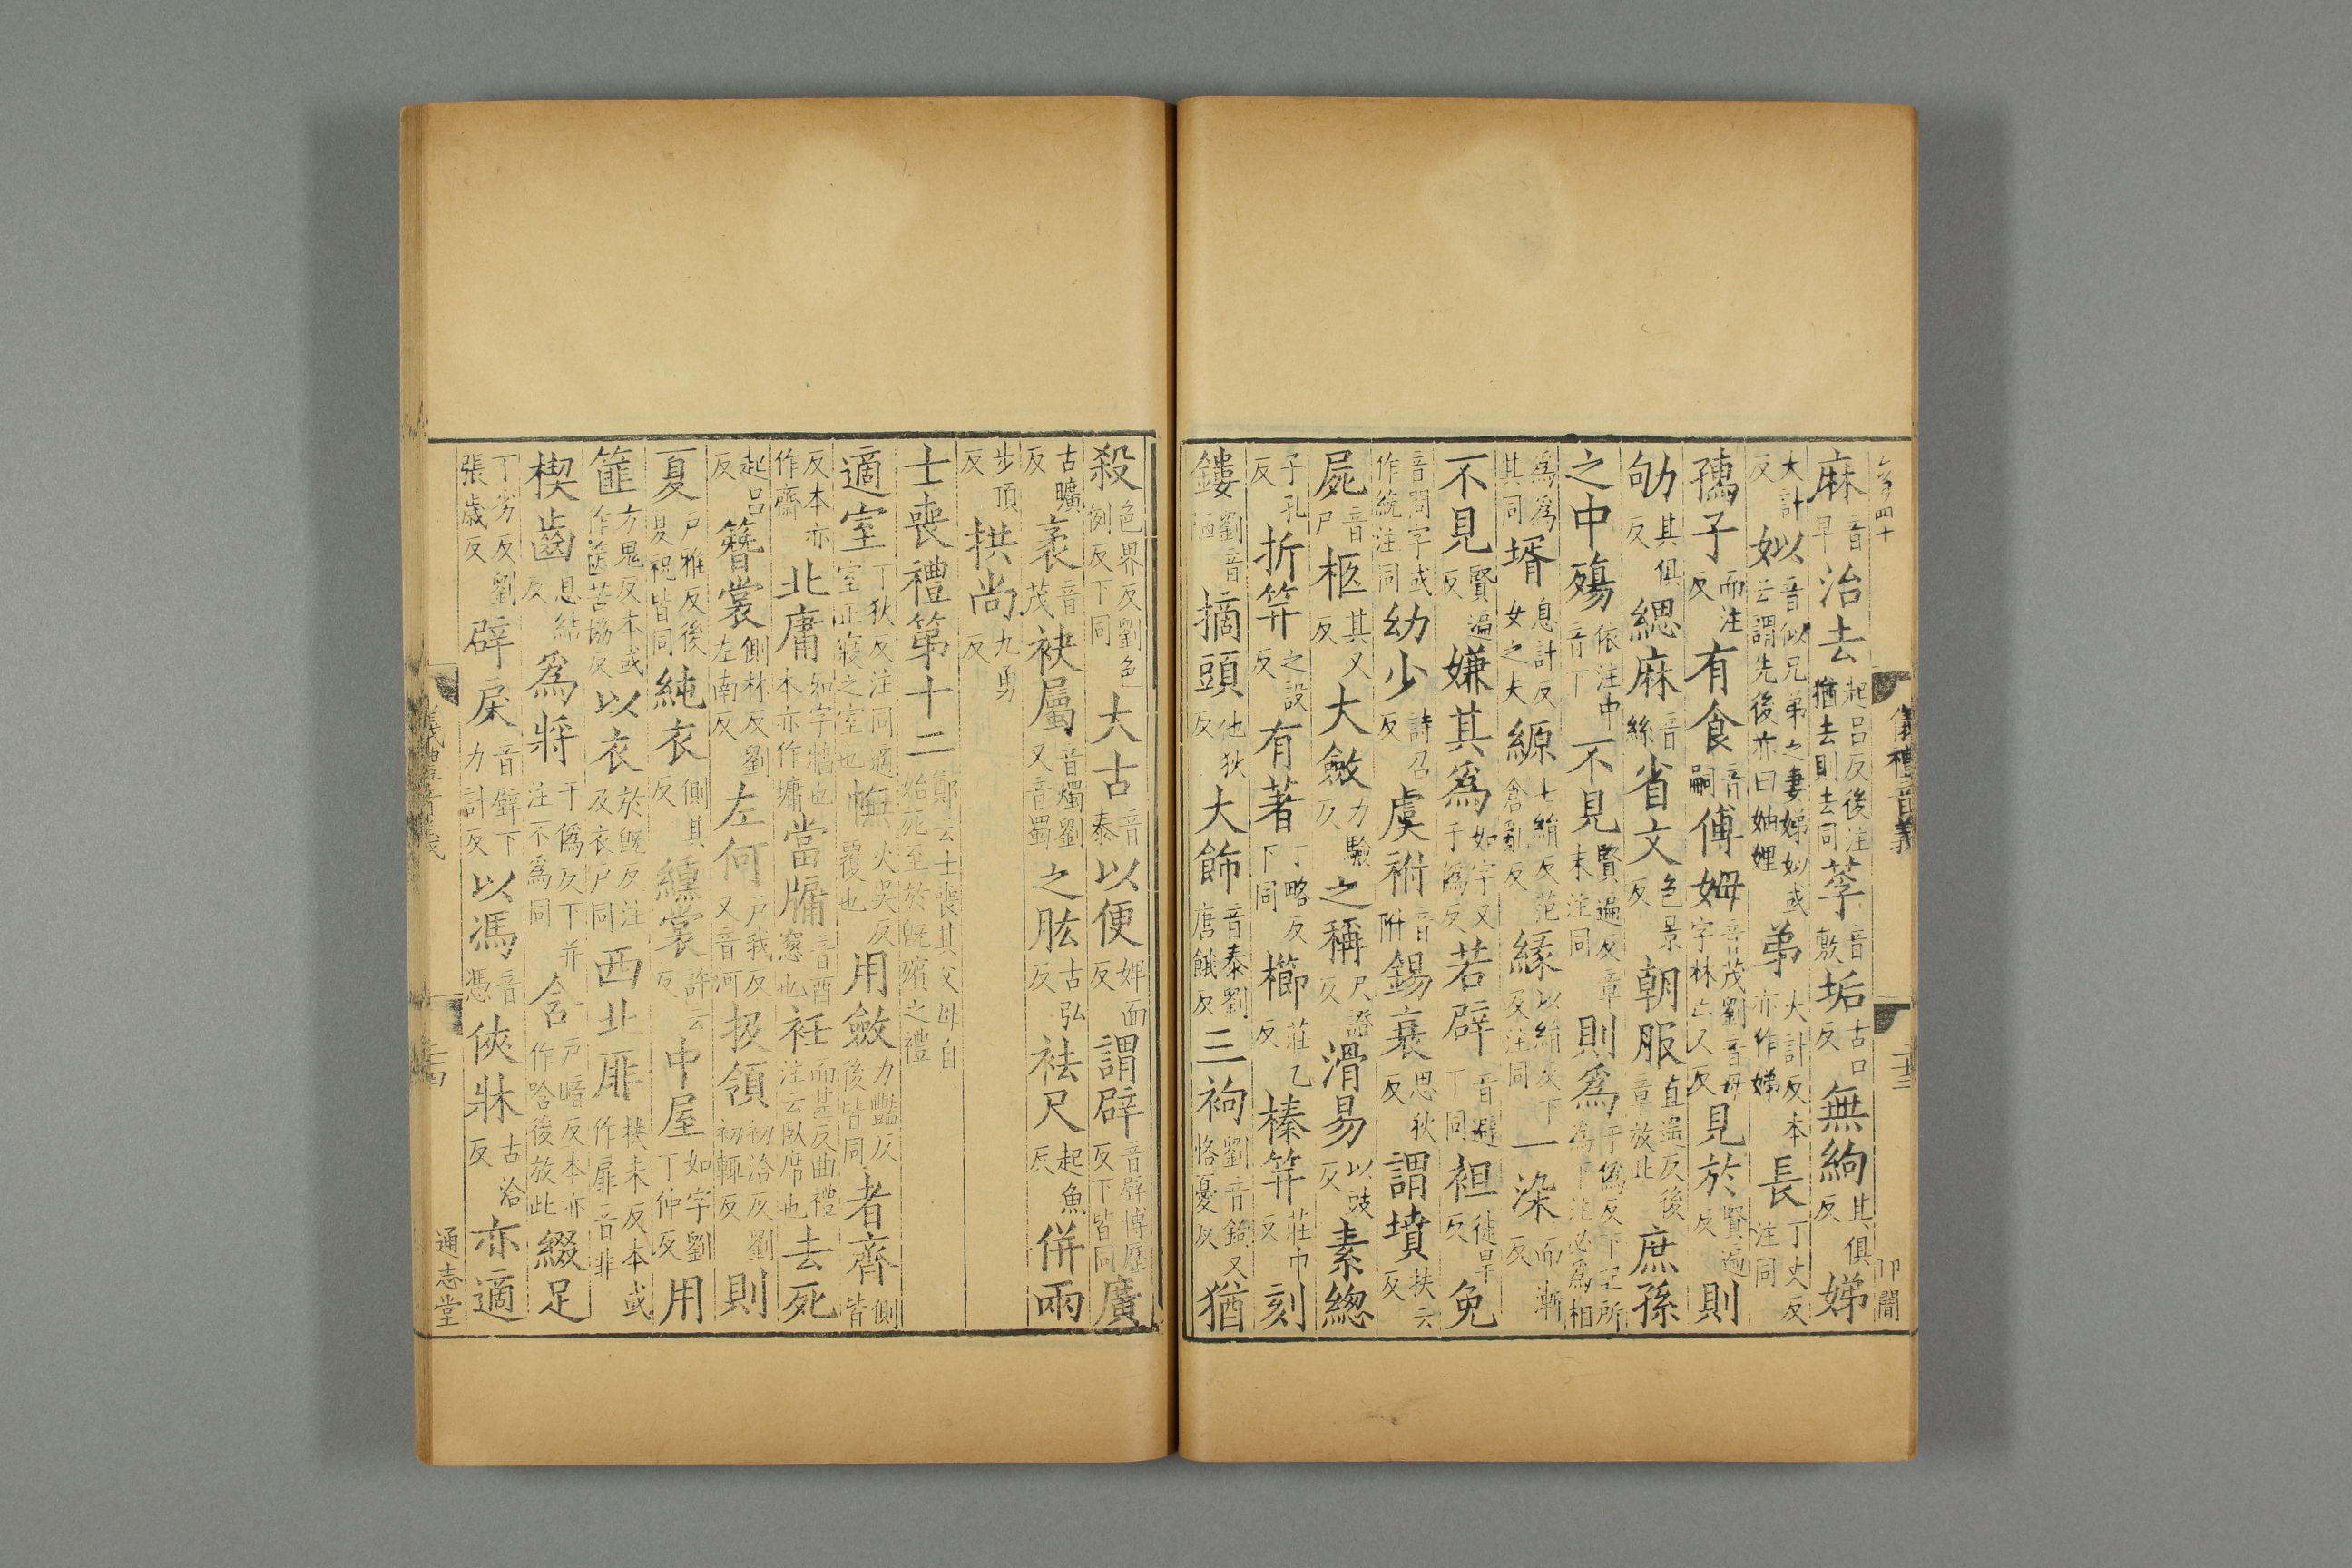 儀禮音義
麻音早治去起呂反後注猶去則去同莩音敷垢古口反無絇其俱反娣
大計反姒音似兄弟之妻娣姒或云謂先後亦曰妯娌弟大計反本亦作娣長丁丈反注同
孺子而注反有食音嗣傅姆音茂劉音母字林亡又反見於賢遍反則
劬其俱反緦麻音絲省文色景反朝服直遥反後章放此庶孫
之中殤依注中音下不見賢遍反章末注同則爲于僞反下記所爲下注必爲相
爲爲其同壻息計反女之夫縓七絹反范倉亂反緣以絹反下及注同一染而漸反
不見賢遍反嫌其爲如字又于僞反若辟音避下同袒徒旱反免
音問字或作絻注同幼少詩召反虞祔音附錫衰思狄反謂墳扶云反
屍音尸柩其又反大斂力驗反之稱尺證反滑易以豉反素總
子孔反折笄之設反有著丁略反下同櫛莊乙反榛笄莊巾反刻
鏤劉音陋摘頭他狄反大飾音泰劉唐餓反三袧劉音鉤又恪憂反猶
殺色界反劉色例反下同大古音泰以便婢面反謂辟音壁博歷反下皆同廣
古曠反袤音茂袂屬音燭劉又音蜀之肱古弘反袪尺起魚反併兩
步頂反拱尚九勇反
士喪禮第十二鄭云士喪其父母自始死至於既殯之禮
適室丁狄反注同適室正寢之室也幠火吴反覆也用斂力豔反後皆同者齊側皆
反本亦作齋北墉如字牆也本亦作墉當牖音酉窓也衽而甚反曲禮注云臥席也去死
起呂反簪裳側林反劉左南反左何戶我反又音河扱領初洽反劉初輒反則
夏戶雅反後夏祝皆同純衣側其反纁裳許云反中屋如字劉丁仲反用
篚方鬼反本或作𥴩苦協反以衣於既反注及衣尸同西北厞扶未反本或作扉音非
楔齒息結反爲將于僞反下并注不爲同含戶暗反本亦作唅後放此綴足
丁劣反劉張歲反辟音壁下戾力計反以馮音憑俠牀古洽反亦適
通志堂